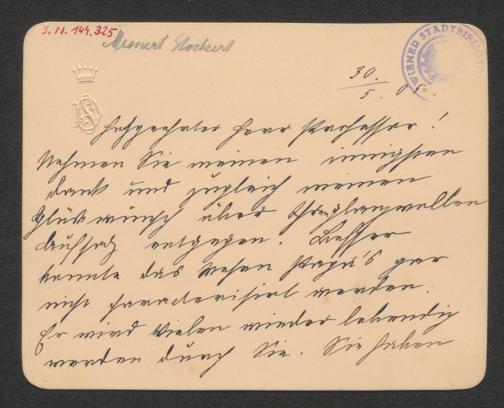 J. N. 144.325
Meinert Stockert
WIENER STADTBIBLIOTHEK
30. 5.
Hochgeehrter Herr Professor!
Nehmen Sie meinen innigsten
Dank und zugleich meinen
Glückwunsch über
Aufsatz entgegen. Besser
konnte das Wesen Papa's gar
nicht characterisirt werden.
Er wird Vielen wieder lebendig
werden durch Sie. Sie haben